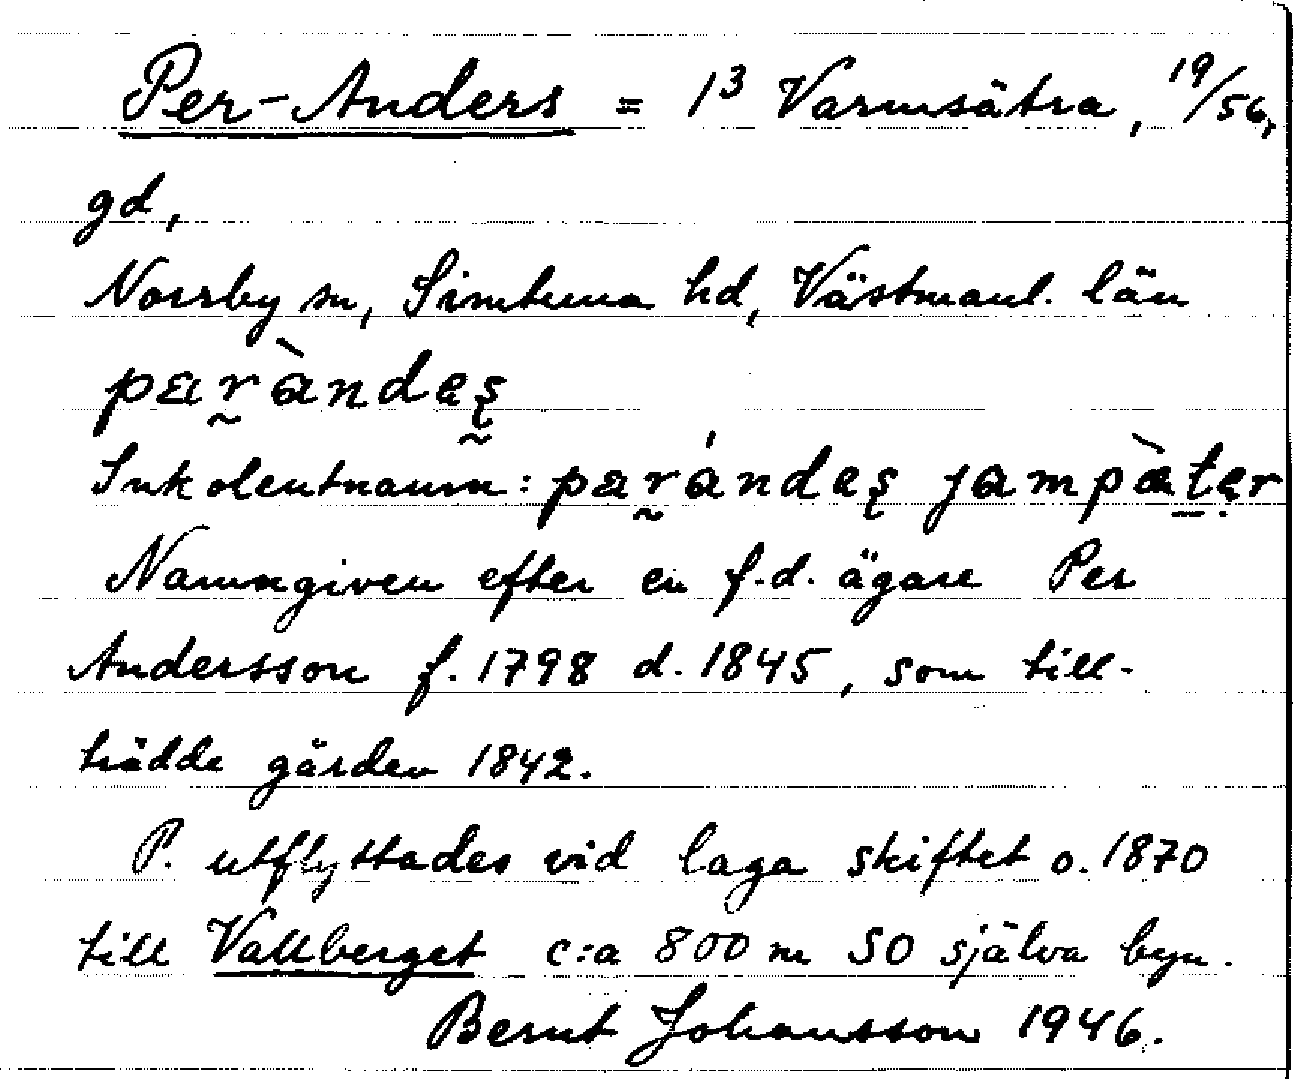 Per-Anders = 1³ Varmsätra, 19/56,
gd,
Norrby sn, Simtuna hd, Västmanl. län
paràndas
Inkolentnamn: parándas jampàtar
Namngiven efter en f.d. ägare Per
Andersson f. 1798 d. 1845, som till-
trädde gården 1842.
P. utflyttades vid laga skiftet o. 1870
till Vallberget c:a 800 m SO själva byn.
Bernt Johansson 1946.